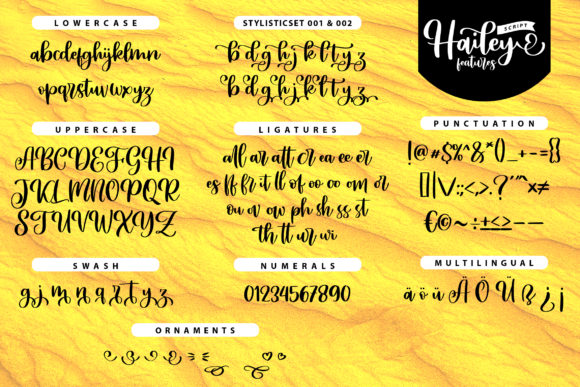 LOWERCASE
abcdefghijklmn
opqrstuvwxyz
STYLISTICSET 001 & 002
b d g h j k l t y z
b d g h j k l t y z
Hailey
SCRIPT
features
UPPERCASE
ABCDEFGHI
JKLMNOPQR
STUVWXYZ
LIGATURES
all ar att cr ea ee er
es ff fr it ll of oo cc om or
ou av ow ph sh ss st
th tt ur wi
PUNCTUATION
!@#$%^&*()_+-={}
[]\/:;<,>.?
€©~÷±<>
SWASH
NUMERALS
01234567890
MULTILINGUAL
ä ö ü Ä Ö Ü ß ¿ ¡
ORNAMENTS